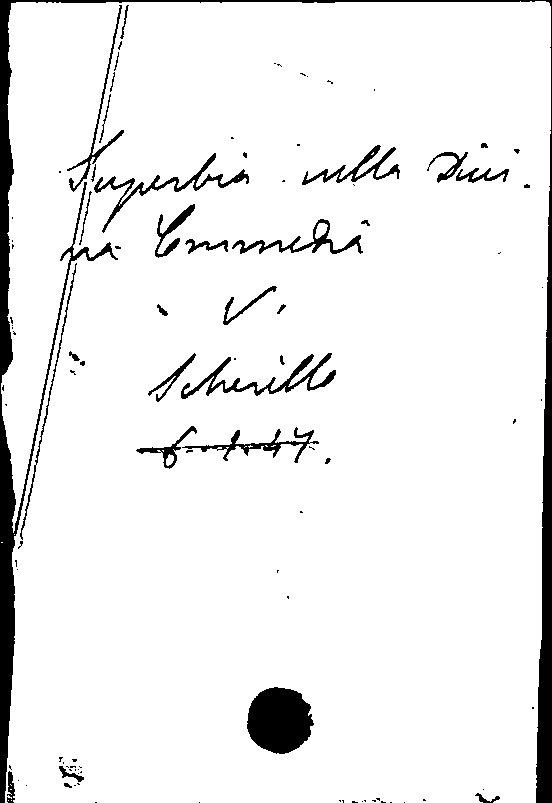 Superbia nella Divi-
na Commedia
V.
Scherillo
6.1.47.